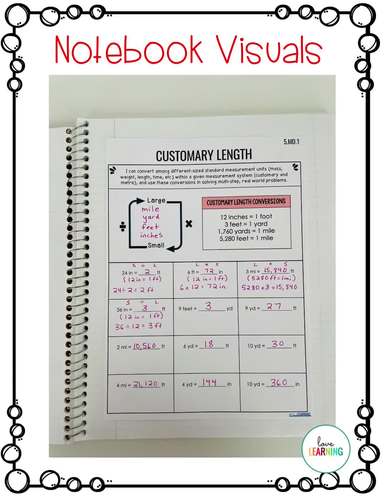 Notebook Visuals
5.MD.1
CUSTOMARY LENGTH
I can convert among different-sized standard measurement units (mass,
weight, length, time, etc) within a given measurement system (customary and
metric), and use these conversions in solving multi-step, real world problems.
Large
mile
yard
feet
inches
Small
÷
×
CUSTOMARY LENGTH CONVERSIONS
12 inches = 1 foot
3 feet = 1 yard
1,760 yards = 1 mile
5,280 feet = 1 mile
S L
24 in = 2 ft
(12 in = 1 ft)
24÷12 = 2 ft
L S
6 ft = 72 in
(12 in = 1 ft)
6 × 12 = 72 in
L S
3 mi = 15,840 ft
(5280 ft = 1 mi)
5280 × 3 = 15,840
S L
36 in = 3 ft
(12 in = 1 ft)
36 ÷ 12 = 3 ft
9 feet = 3 yd
9 yd = 27 ft
2 mi = 10,560 ft
6 yd = 18 ft
10 yd = 30 ft
4 mi = 21,120 ft
4 yd = 144 in
10 yd = 360 in
love
LEARNING